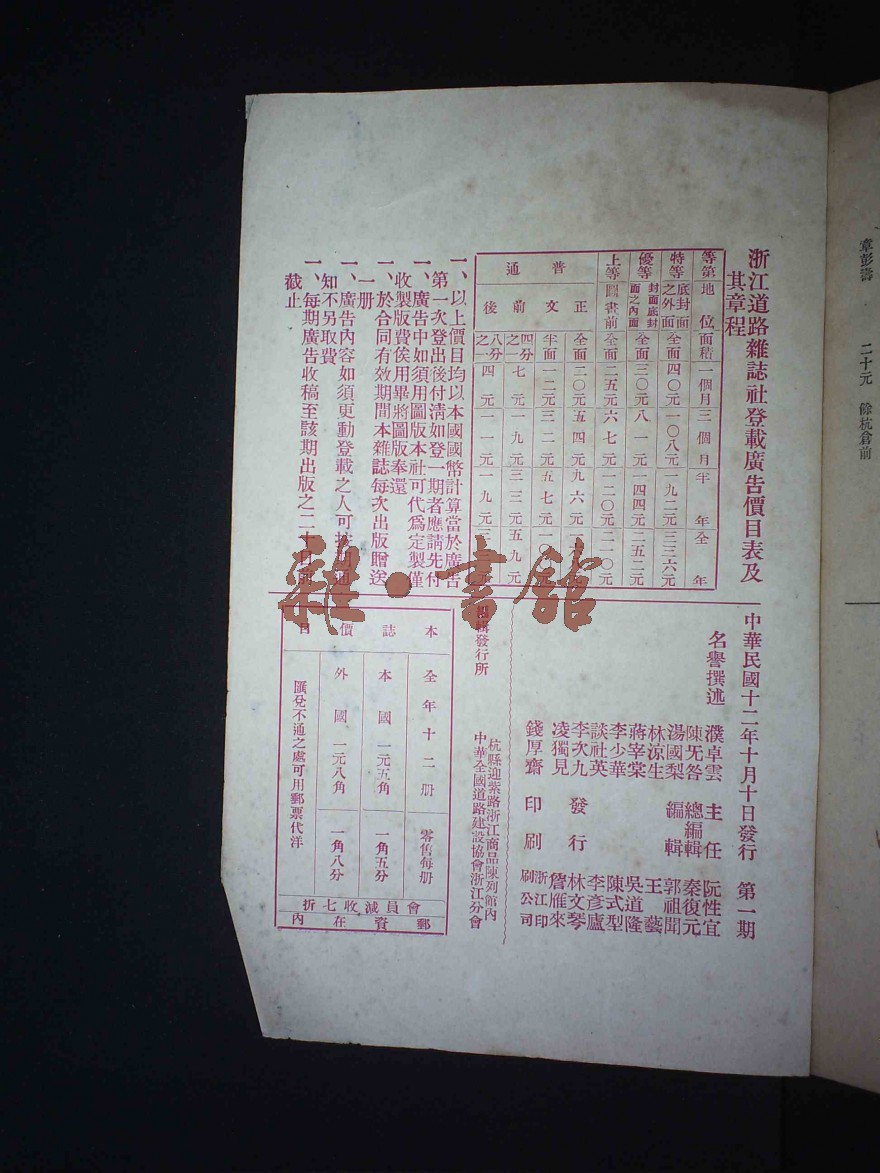 浙江道路雜誌社登載廣告價目表及
其章程
等第 地位 面積 一個月 三個月 半年 全年
特等 底封面之外面 全面 四〇元 一〇八元 一九二元 三三六元
優等 封面底封面之內面 全面 三〇元 八一元 一四四元 二五二元
上等 圖書前 全面 二五元 六七元 一二〇元 二一〇元
普通 正文前後
全面 二〇元 五四元 九六元
半面 一二元 三二元 五七元
四分之一 七元 一九元 三三元 五九元
八分之一 四元 一一元 一九元
一、以上價目均以本國國幣計算當於廣告
第一次登出後付清如登一期者應請先付
一、廣告中如須用圖版本社可代爲定製僅
收製版費俟用畢將圖版奉還
一、於合同有效期間本雜誌每次出版贈送
一册
一、廣告內容如須更動登載之人可
知不另取費
一、每期廣告收稿至該期出版之二十
截止
中華民國十二年十月十日發行 第一期
名譽撰述 濮卓雲 主任 阮性宜
陳旡咎 總編輯 秦復元
湯國梨 編輯 郭祖聞
林涼生 王藝
蔣宰棠 吳道隆
李少華 陳式型
談社英 李彥廬
李次九 發行 林文琴
凌獨見 詹雁來
錢厚齋 印刷 浙江印刷公司
編輯發行所
杭縣迎紫路浙江商品陳列館內
中華全國道路建設協會浙江分會
本誌價目
全年十二册 零售每册
本國 一元五角 一角五分
外國 一元八角 一角八分
匯兌不通之處可用郵票代洋
會員減收七折
郵資在內
章彭濤 二十元 餘杭倉前
雜·書館